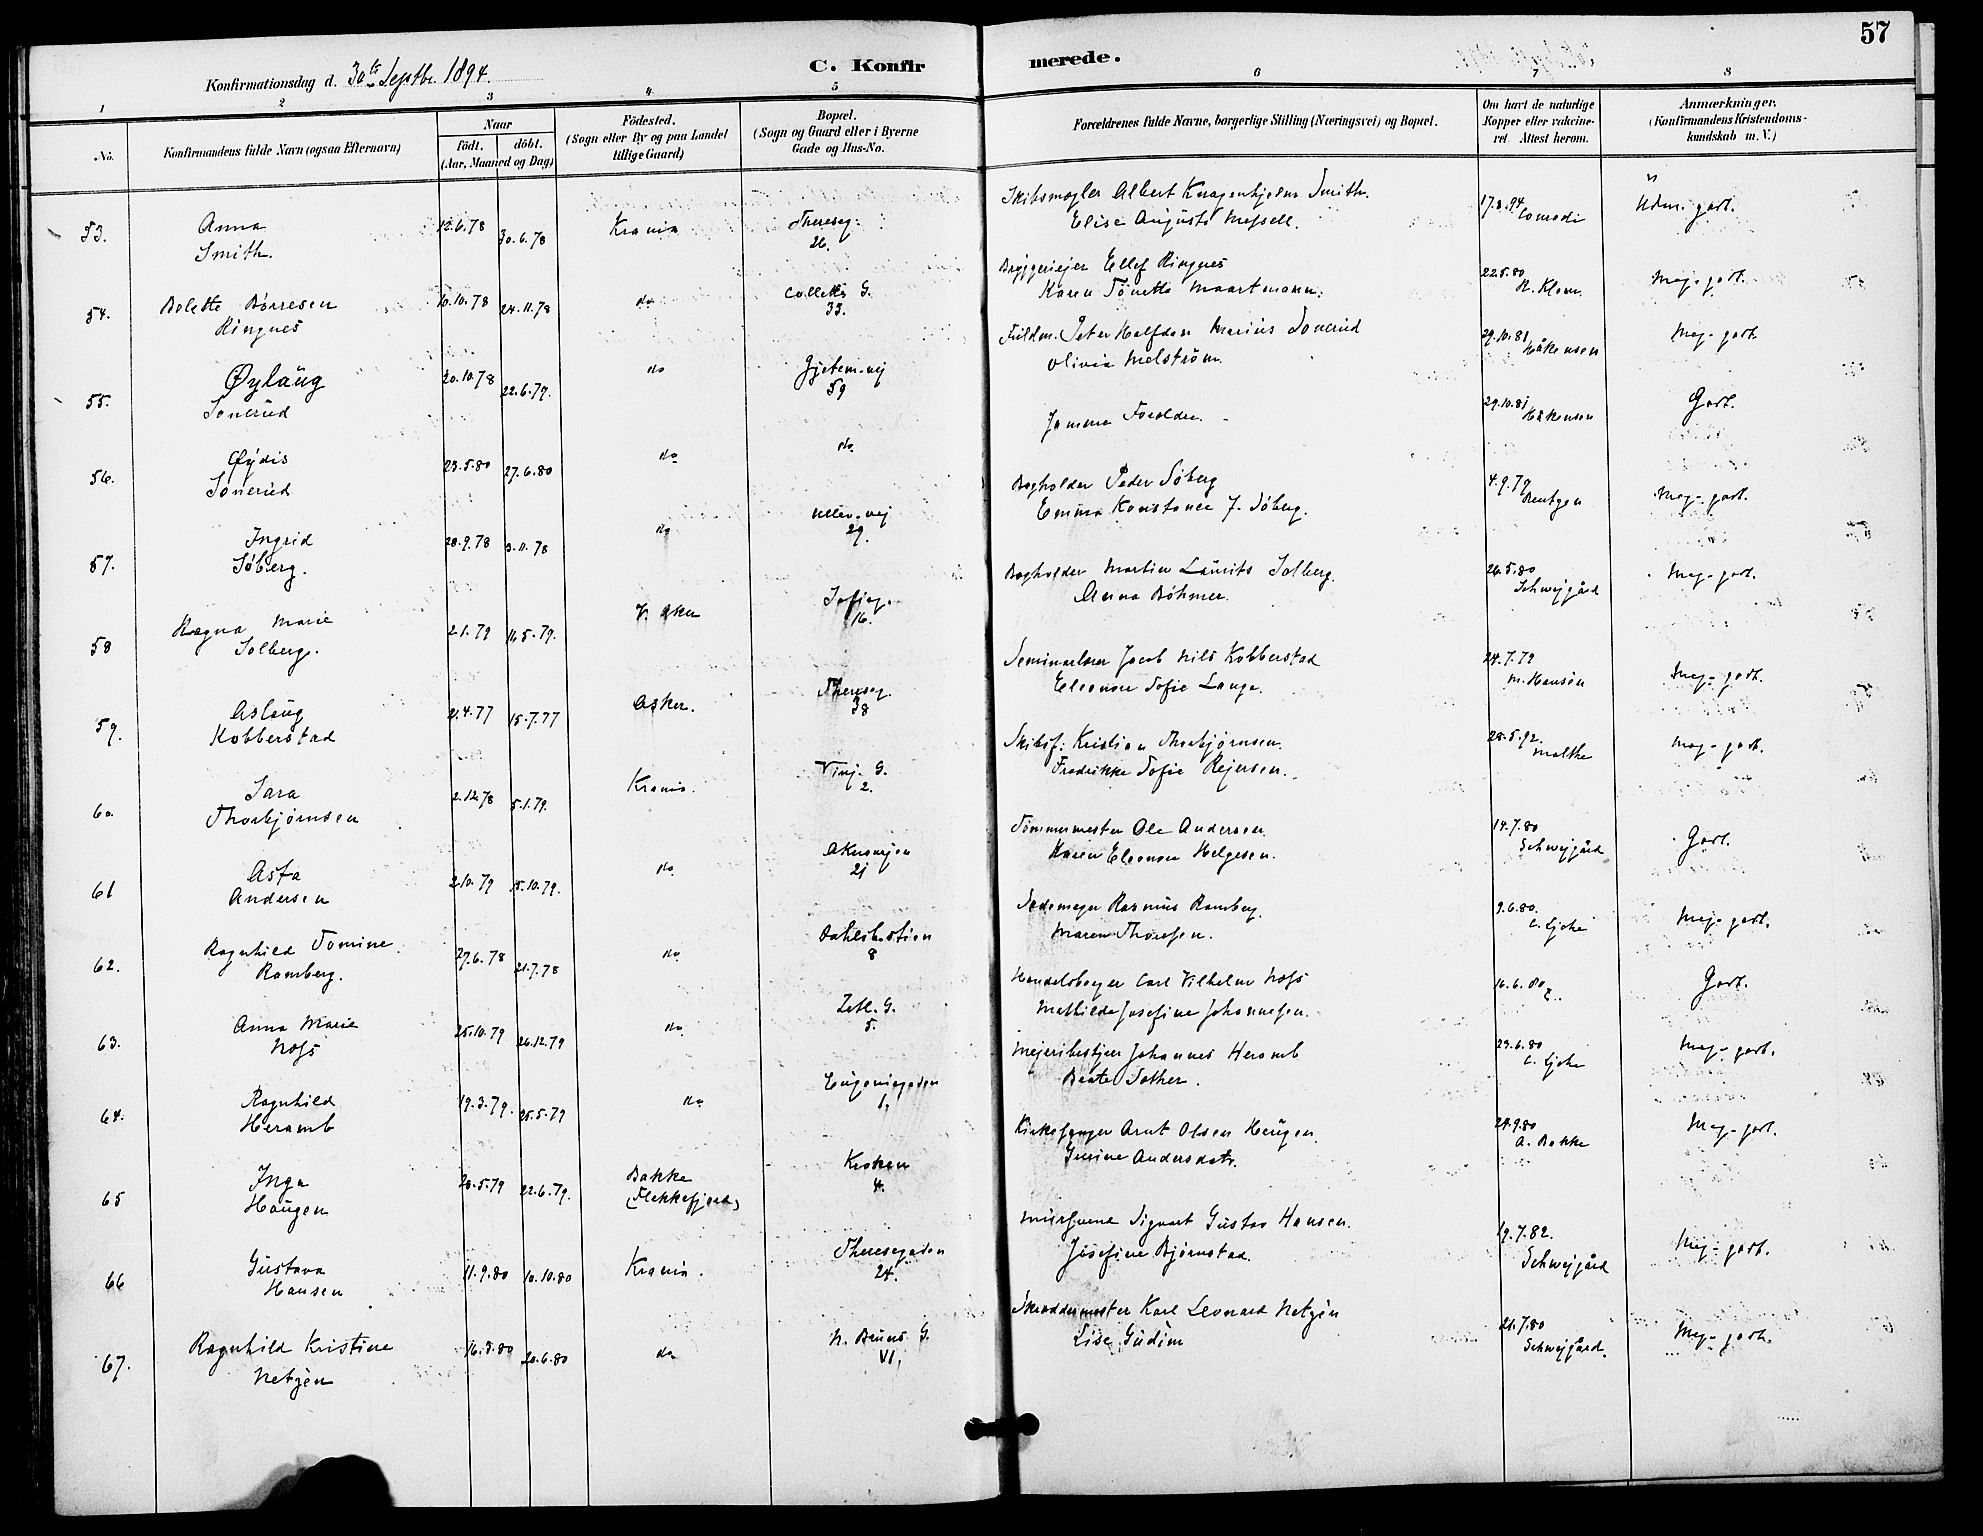 57
Konfirmationsdag d. 30te Septbr. 1894.
C. Konfirmerede.
1 2 3 4 5 6 7 8
No. Konfirmandens fulde Navn (ogsaa Efternavn) Naar födt. döbt. (Aar, Maaned og Dag) Födested. (Sogn eller By og paa Landet tillige Gaard) Bopæl. (Sogn og Gaard eller i Byerne Gade og Hus-No. Forældrenes fulde Navne, borgerlige Stilling (Næringsvei) og Bopæl. Om havt de naturlige Kopper eller vakcineret Attest herom. Anmærkninger. (Konfirmandens Kristendomskundskab m. V.)
53. Anna Smith. 12.6.78 30.6.78 Krania Thereseg. 26. Skibsmægler Albert Smith. Elise Augusta 17.8.94 Udm. godt.
54. Bolette Børresen Ringnes 10.10.78 24.11.78 do Colletts G. 33. Bryggeriejer Ellef Ringnes Karen Tonette Maartmann. 22.5.80 Meg. godt.
55. Øylaug Sonerud 20.10.78 22.6.79. do Gjetem.vej 59 Fuldm. Peter Halfdan Marius Sonerud Olivia Melstrøm. 29.10.81 Håkensen Meg. godt.
56. Øydis Sonerud 23.5.80 27.6.80 do do Samme Forældre. 29.10.81 Håkensen Godt.
57. Ingrid Søberg. 28.9.78 3.11.78 do Ullev. vej 29. Bogholder Peder Søberg Emma Konstance J. Søberg. 4.9.79 Bentzen Meg. godt.
58 Ragna Marie Solberg. 2.1.79 16.5.79. V. Aker Sofieg. 16. Bogholder Martin Laurits Solberg. Anna Bøhmer. 26.5.80 Schwejgård Meg. godt.
59. Aslaug Kobberstad 21.4.77 15.7.77 Asker. Thereseg. 38 Seminarlærer Jacob Nils Kobberstad Eleonore Sofie Lange. 24.7.79 M. Hansén Meg. godt.
60. Sara Thorbjørnsen 2.12.78 5.1.79. Krania. Vinj. G. 2. Skibsf. Kristian Thorbjørnsen. Fredrikke Sofie Rejersen. 28.5.92. Malthe Meg. godt.
61 Asta Andersen 2.10.79 15.10.79. do Akersvejen 21 Tømmermester Ole Andersen. Karen Eleonore Helgesen. 14.7.80 Schwejgård Godt.
62. Ragnhild Tomine Ramberg. 27.6.78 21.7.78 do 8 Rasmus Ramberg. Maren Thoresen. 9.6.80. Meg. godt.
63. Anna Marie Moss 25.10.79 26.12.79 do Zetl. G. 5. Carl Vilhelm Moss Mathilde Josefine Johannesen. 16.6.80 Godt.
64. Ragnhild Heramb 19.3.79. 25.5.79 do Eugeniegaden 1. Mejeribestyrer Johannes Heramb Beate Sother. 23.6.80 Meg. godt.
65 Inga Haugen 28.5.79 22.6.79. Bakke (Flekkefjord) Kroken 4. Kirkesanger Arnt Olsen Haugen Gurine Andersdatr. 24.9.80 A. Bakke Meg. godt.
66 Gustava Hansen 11.9.80 10.10.80 Krania. Theresegaden 24. Murersvend Sigvart Gustav Hansen. Josefine Bjørnstad. 19.7.82. Schwejgård Meg. godt.
67. Ragnhild Kristine Netzén 16.5.80 20.6.80 do N. Bruns G. VI. Skræddermester Karl Leonard Netzén Lise Gudim 21.7.80 Schwejgård. Meg. godt.